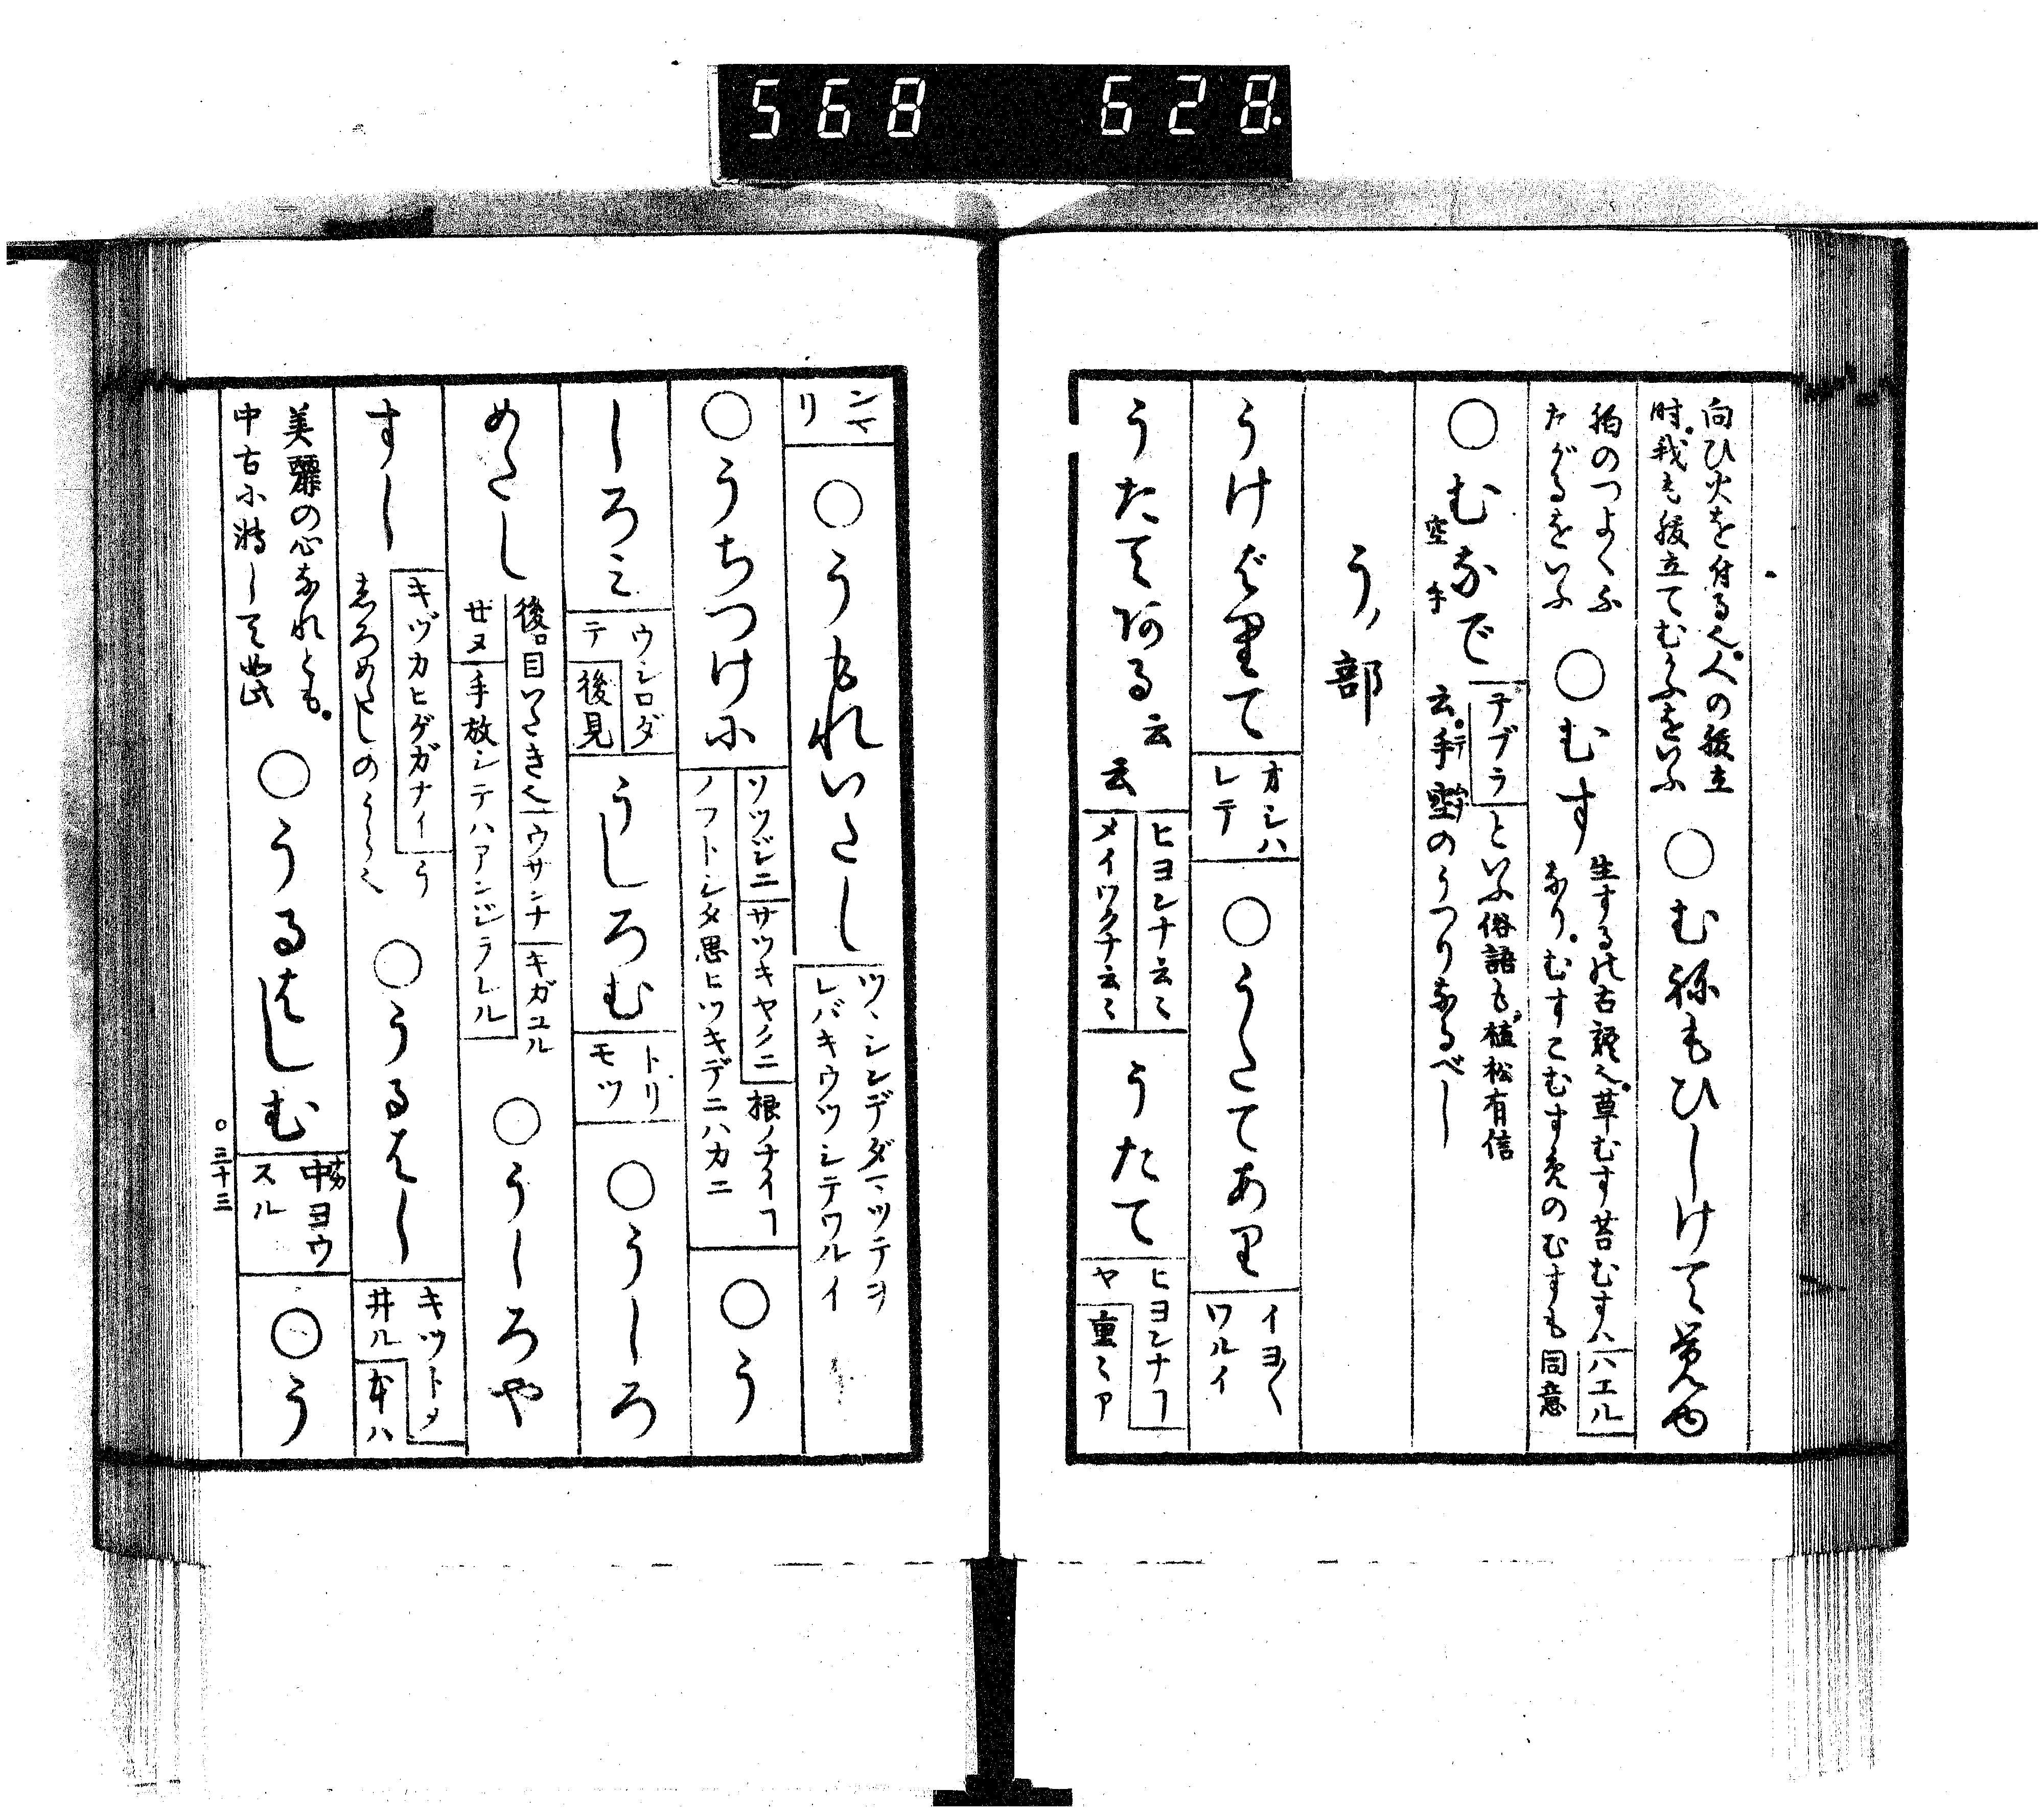 568 628.
向ひ火を付る也。人の腹立
時。我も腹立てむかふをいふ
○むねもひしげて覚ゆ
胸のつよくふ
たがるをいふ
○むす
生ずるの古語也。草むす苔むすハハエル
なり。むすこむすめのむすも同意
○むなで
空手
テブラ
といふ俗語も。植松有信
云。手空のうつりなるべし
う部
うけばりて
オシハ
レテ
○うたてあり
イヨ〱
ワルイ
うたてある云
云
ヒヨンナ云〻
メイワクナ云〻
うたて
ヒヨンナヿ
ヤ
重〻ア
ンマ
リ
○うもれいたし
ツヽシンデダマツテヲ
レバキウツシテワルイ
○うちつけに
ソツジニ
サツキヤクニ
根ノナイヿ
ノフトシタ思ヒツキデニハカニ
○う
しろミ
ウシロダ
テ
後見
うしろむ
トリ
モツ
○うしろ
めたし
後ロ目いたき也
ウサンナ
キガユル
セヌ
手放シテハアンジラレル
○うしろや
すし
キヅカヒゲガナイ
う
しろめたしのうら也
○うるはし
キツトメ
井ル
本ハ
美麗の心なれども。
中古に転して此
○うるはしむ
中ヨウ
スル
○う
○三十三